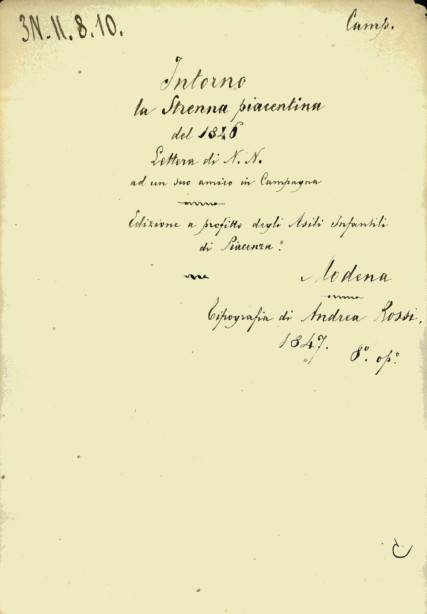 3N.II.8.10.
Camp.
Intorno
la Strenna piacentina
del 1846
Lettera di N. N.
ad un suo amico in Campagna
Edizione a profitto degli Asili Infantili
di Piacenza.
Modena
Tipografia di Andrea Rossi.
1847.
8º. opº.